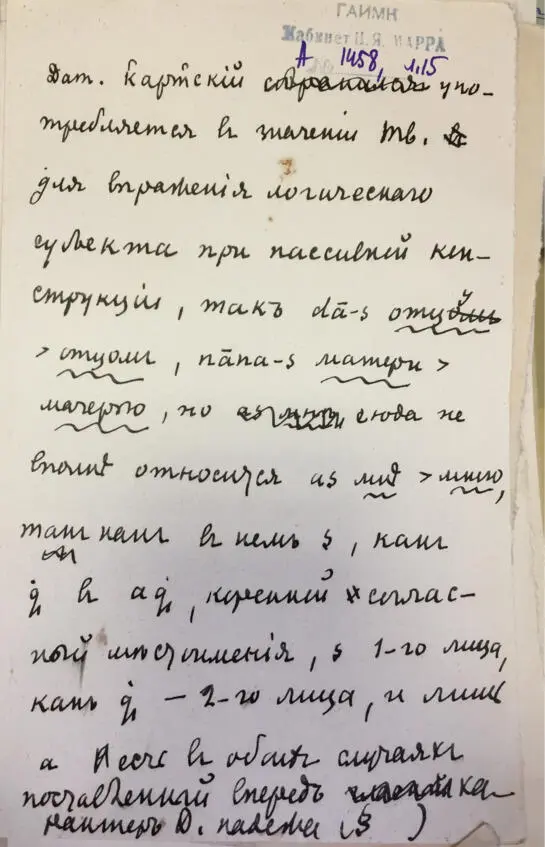 ГАИМК
Кабинет Н. Я. МАРРА
А 1458, л.15
Дат. Картскій упо-
требляется въ значеніи Тв.
для выраженія логическаго
субъекта при пассивной кон-
струкціи, такъ dā-s отцу
> отцомъ, nāna-s матери >
матерью, но сюда не
вполнѣ относится as мнѣ > мною,
такъ какъ въ немъ s, какъ
q̇ въ aq̇, коренной соглас-
ный мѣстоименія, s 1-го лица,
какъ q̇ – 2-го лица, и лишь
a есть въ обоихъ случаяхъ
поставленный впередъ ха-
рактеръ D. падежа (s )